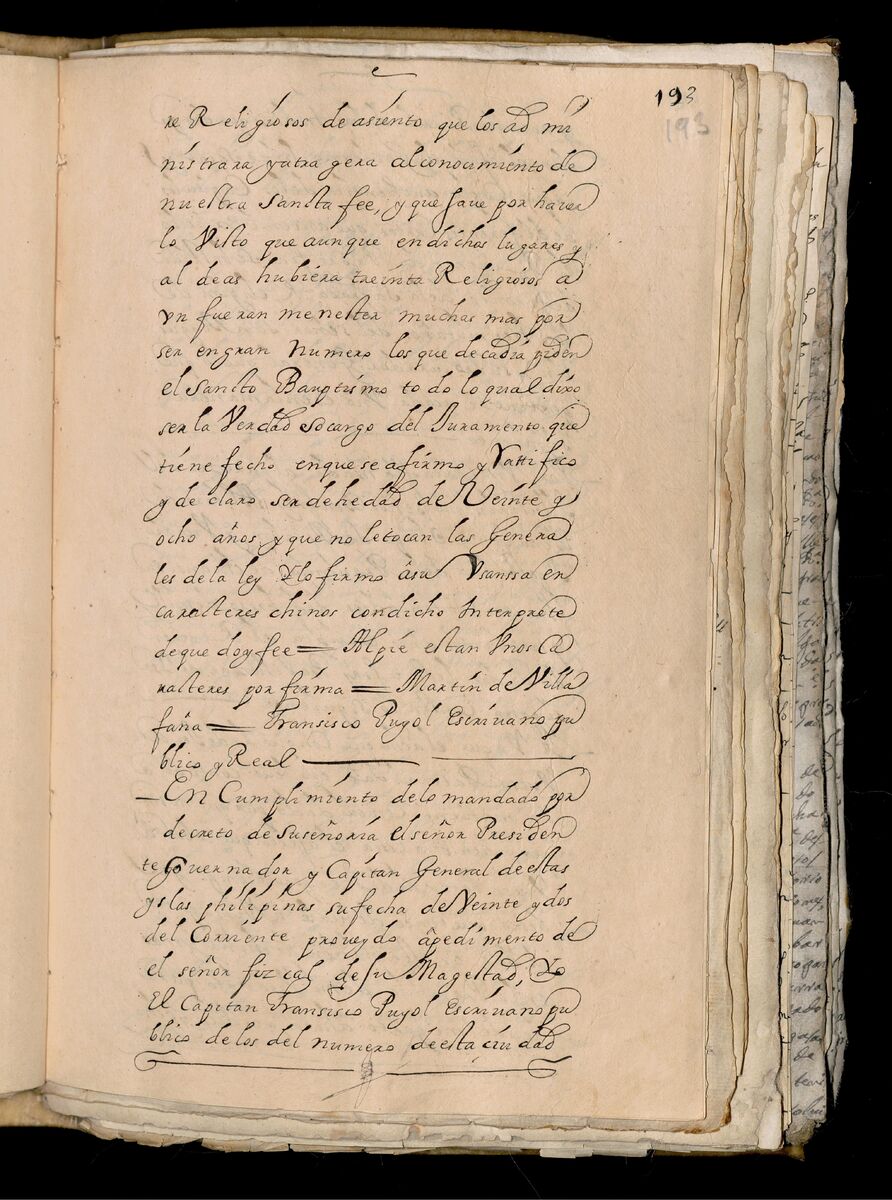 193
193
re Religiosos de asiento que los ad mi
nistrara y atra gera al conocimiento de
nuestra Sancta fee, y que save por haver
lo Visto que aunque en dichos lugares y
al deas hubiera treinta Religiosos a
vn fueran menester muchas mas por
ser en gran numero los que de cadia piden
el Sancto Bauptismo to do lo qual dixo
ser la Verdad socargo del Juramento que
tiene fecho en que se afirmo y Rattifico
y de claro ser de hedad de Veinte y
ocho años y que no le tocan las Genera
les de la ley Y lo firmo á su Vsanssa en
caracteres chinos con dicho Interprete
de que doy fee = Al pie estan Vnos Ca
racteres por firma = Martin de Villa
faña = Fransisco Puyol Escrivano pu
blico y Real
En Cumplimiento de lo mandado por
decreto de Su señoria el señor Presiden
te Gouernador y Capitan General de estas
yslas philipinas su fecha de Veinte y dos
del Corriente proveydo á pedimento de
el señor fiz cal de su Magestad, Yo
El Capitan Fransisco Puyol Escrivano pu
blico de los del numero de esta ciudad